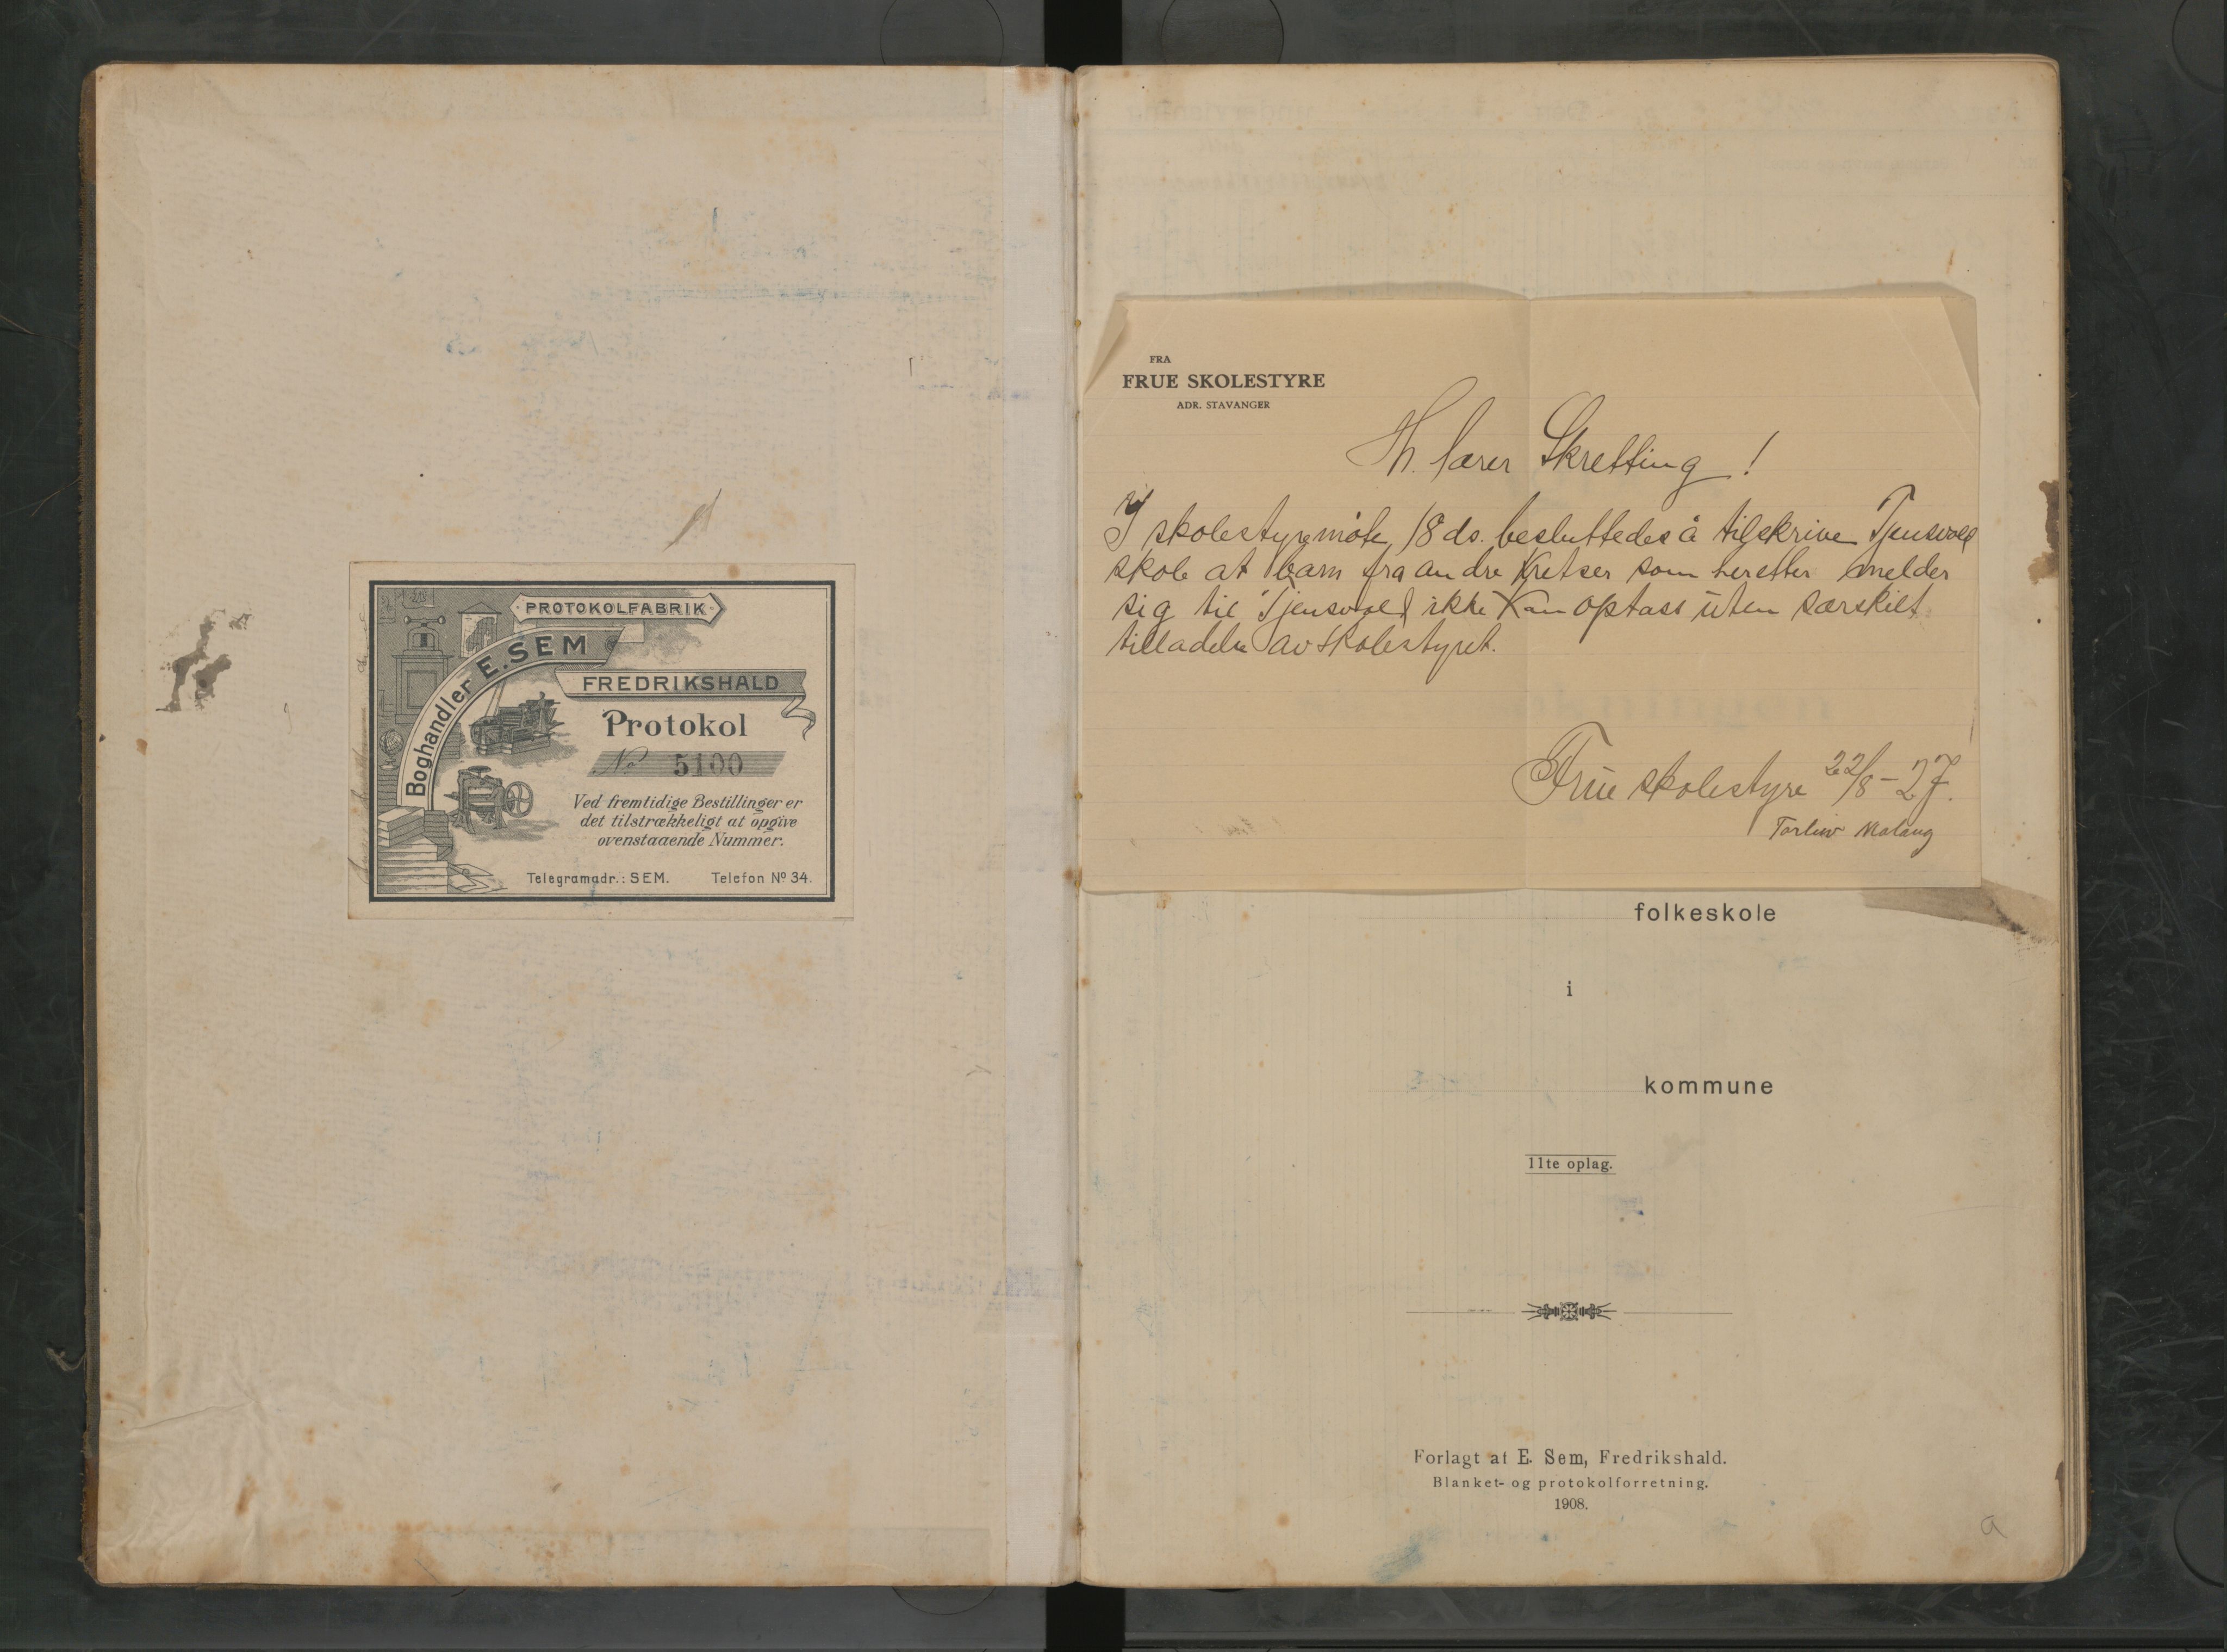 PROTOKOLFABRIK
Boghandler E. SEM
FREDRIKSHALD
Protokol
No 5100
Ved fremtidige Bestillinger er
det tilstrækkeligt at opgive
ovenstaaende Nummer.
Telegramadr.: SEM. Telefon No 34.
FRA
FRUE SKOLESTYRE
ADR. STAVANGER
Hr. lærer Skretting!
I skolestyremøte 18 ds. besluttedes å tilskrive Tjensvoll
skole at barn fra andre kretser som herefter melder
sig til Tjensvoll ikke kan optass uten særskilt
tilladelse av skolestyret.
Frue skolestyre 22/8-27.
Torleiv
folkeskole
i
kommune
11te oplag.
Forlagt af E. Sem, Fredrikshald.
Blanket- og protokolforretning.
1908.
a